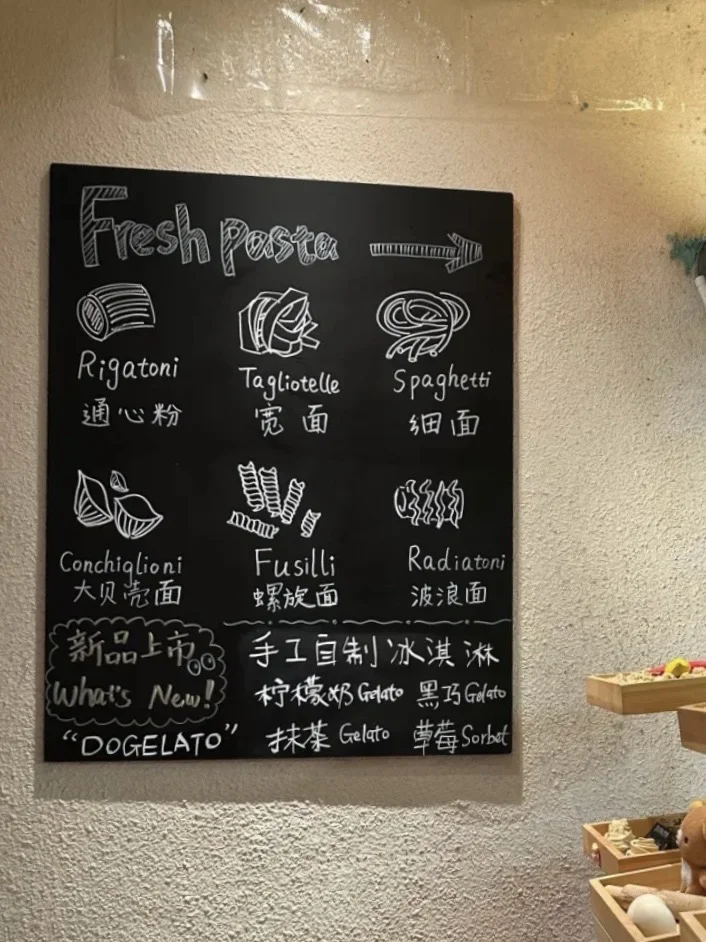 Fresh pasta
Rigatoni
通心粉
Tagliotelle
宽面
Spaghetti
细面
Conchiglioni
大贝壳面
Fusilli
螺旋面
Radiatoni
波浪面
新品上市
What's New!
"DOGELATO"
手工自制冰淇淋
柠檬奶 Gelato 黑巧 Gelato
抹茶 Gelato 草莓 Sorbet